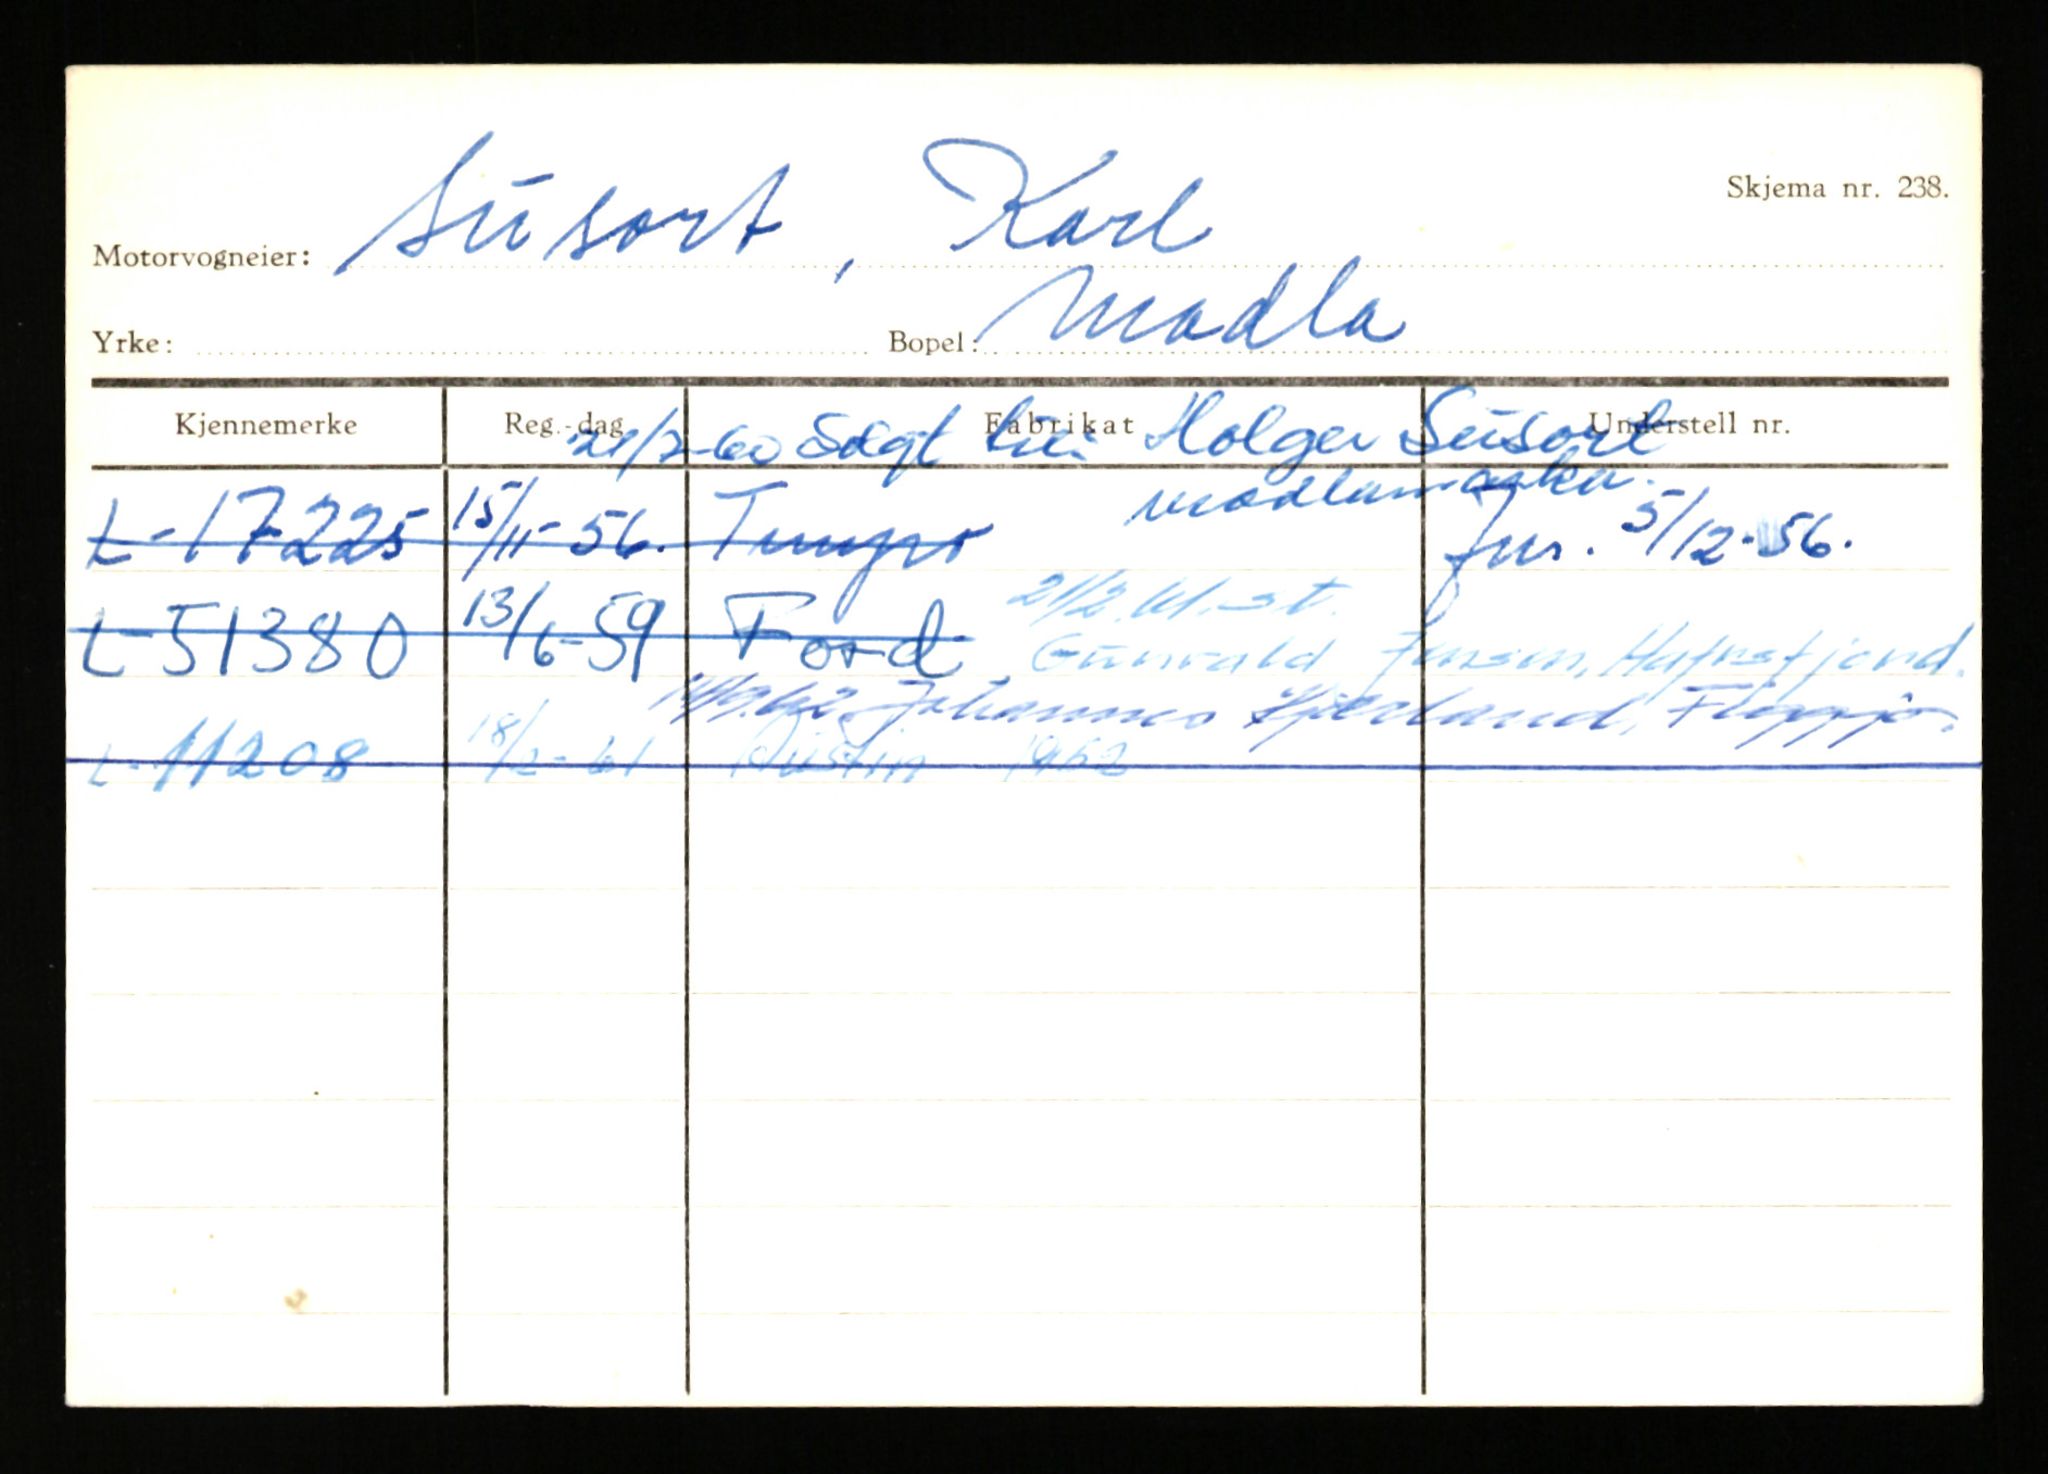 Skjema nr. 238.
Motorvogneier: Susort, Karl
Yrke: Bopel: Madla
Kjennemerke Reg.-dag Fabrikat Understell nr.
21/2-60 Solgt til: Holger Susort
Madlamarka.
L-17225 15/11-56. Tempo Jnr. 5/12-56.
L-51380 13/6-59 Ford 21/2.61. st.
Gunvald Jensen, Hafrsfjord.
Johannes Hjelmeland, Figgjo.
L-11208 18/2-61 Austin 1952